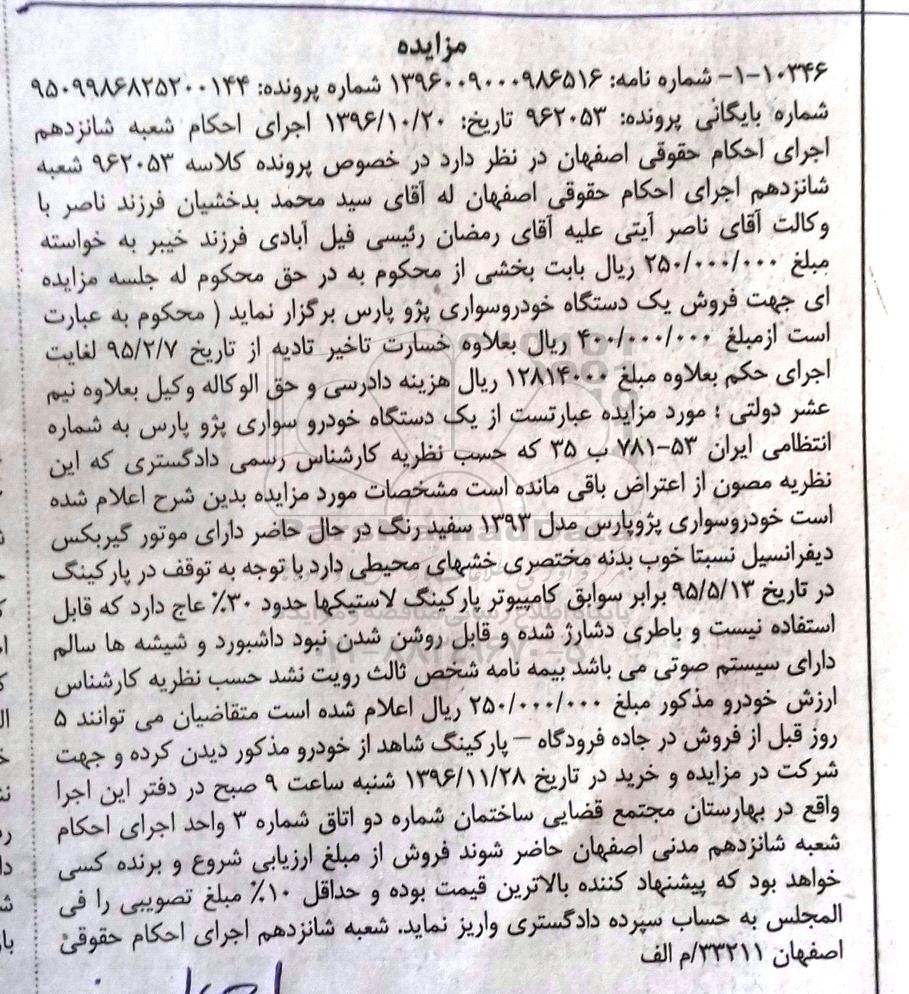 مزایده
۱۰۳۴۶-۱-۱- شماره نامه: ۱۳۹۶۰۰۹۰۰۰۹۸۶۵۱۶ شماره پرونده: ۹۵۰۹۹۸۶۸۲۵۲۰۰۱۴۴
شماره بایگانی پرونده: ۹۶۲۰۵۳ تاریخ: ۱۳۹۶/۱۰/۲۰ اجرای احکام شعبه شانزدهم
اجرای احکام حقوقی اصفهان در نظر دارد در خصوص پرونده کلاسه ۹۶۲۰۵۳ شعبه
شانزدهم اجرای احکام حقوقی اصفهان له آقای سید محمد بدخشیان فرزند ناصر با
وکالت آقای ناصر آیتی علیه آقای رمضان رئیسی فیل آبادی فرزند خیبر به خواسته
مبلغ ۲۵۰/۰۰۰/۰۰۰ ریال بابت بخشی از محکوم به در حق محکوم له جلسه مزایده
ای جهت فروش یک دستگاه خودروسواری پژو پارس برگزار نماید ( محکوم به عبارت
است ازمبلغ ۴۰۰/۰۰۰/۰۰۰ ریال بعلاوه خسارت تاخیر تادیه از تاریخ ۹۵/۲/۷ لغایت
اجرای حکم بعلاوه مبلغ ۱۲۸۱۴۰۰۰ ریال هزینه دادرسی و حق الوکاله وکیل بعلاوه نیم
عشر دولتی ؛ مورد مزایده عبارتست از یک دستگاه خودرو سواری پژو پارس به شماره
انتظامی ایران ۵۳-۷۸۱ ب ۳۵ که حسب نظریه کارشناس رسمی دادگستری که این
نظریه مصون از اعتراض باقی مانده است مشخصات مورد مزایده بدین شرح اعلام شده
است خودروسواری پژوپارس مدل ۱۳۹۳ سفید رنگ در حال حاضر دارای موتور گیربکس
دیفرانسیل نسبتا خوب بدنه مختصری خشهای محیطی دارد با توجه به توقف در پارکینگ
در تاریخ ۹۵/۵/۱۳ برابر سوابق کامپیوتر پارکینگ لاستیکها حدود ۳۰٪ عاج دارد که قابل
استفاده نیست و باطری دشارژ شده و قابل روشن شدن نبود داشبورد و شیشه ها سالم
دارای سیستم صوتی می باشد بیمه نامه شخص ثالث رویت نشد حسب نظریه کارشناس
ارزش خودرو مذکور مبلغ ۲۵۰/۰۰۰/۰۰۰ ریال اعلام شده است متقاضیان می توانند ۵
روز قبل از فروش در جاده فرودگاه – پارکینگ شاهد از خودرو مذکور دیدن کرده و جهت
شرکت در مزایده و خرید در تاریخ ۱۳۹۶/۱۱/۲۸ شنبه ساعت ۹ صبح در دفتر این اجرا
واقع در بهارستان مجتمع قضایی ساختمان شماره دو اتاق شماره ۳ واحد اجرای احکام
شعبه شانزدهم مدنی اصفهان حاضر شوند فروش از مبلغ ارزیابی شروع و برنده کسی
خواهد بود که پیشنهاد کننده بالاترین قیمت بوده و حداقل ۱۰٪ مبلغ تصویبی را فی
المجلس به حساب سپرده دادگستری واریز نماید. شعبه شانزدهم اجرای احکام حقوقی
اصفهان ۳۳۲۱۱/م الف